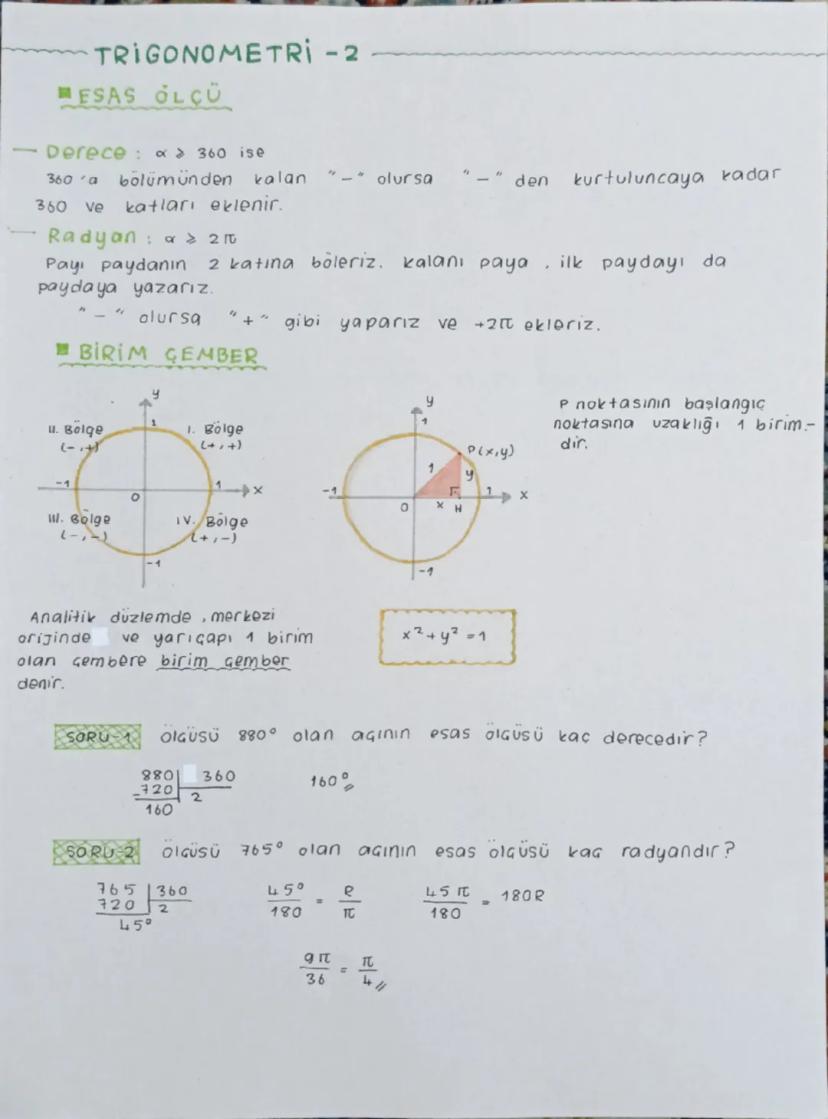 TRİGONOMETRİ - 2
ESAS ÖLÇÜ
Derece : α ≥ 360 ise
360'a bölümünden kalan "-" olursa "-" den kurtuluncaya kadar
360 ve katları eklenir.
Radyan : α ≥ 2π
Payı paydanın 2 katına böleriz. kalanı paya , ilk paydayı da
paydaya yazarız.
"-" olursa "+" gibi yaparız ve +2π ekleriz.
BİRİM ÇEMBER
y
II. Bölge
(-,+)
1
I. Bölge
(+,+)
-1
O
1
x
III. Bölge
(-,-)
IV. Bölge
(+,-)
-1
y
1
P(x,y)
1
y
-1
O
x
H
1
x
-1
P noktasının başlangıç
noktasına uzaklığı 1 birim-
dir.
Analitik düzlemde , merkezi
orijinde ve yarıçapı 1 birim
olan çembere birim çember
denir.
x² + y² = 1
SORU-1 Ölçüsü 880° olan açının esas ölçüsü kaç derecedir?
880 | 360
-720 | 2
160
160°
SORU-2 Ölçüsü 765° olan açının esas ölçüsü kaç radyandır?
765 | 360
720 | 2
45°
45°/180 = R/π
45π/180 = 180R
9π/36 = π/4